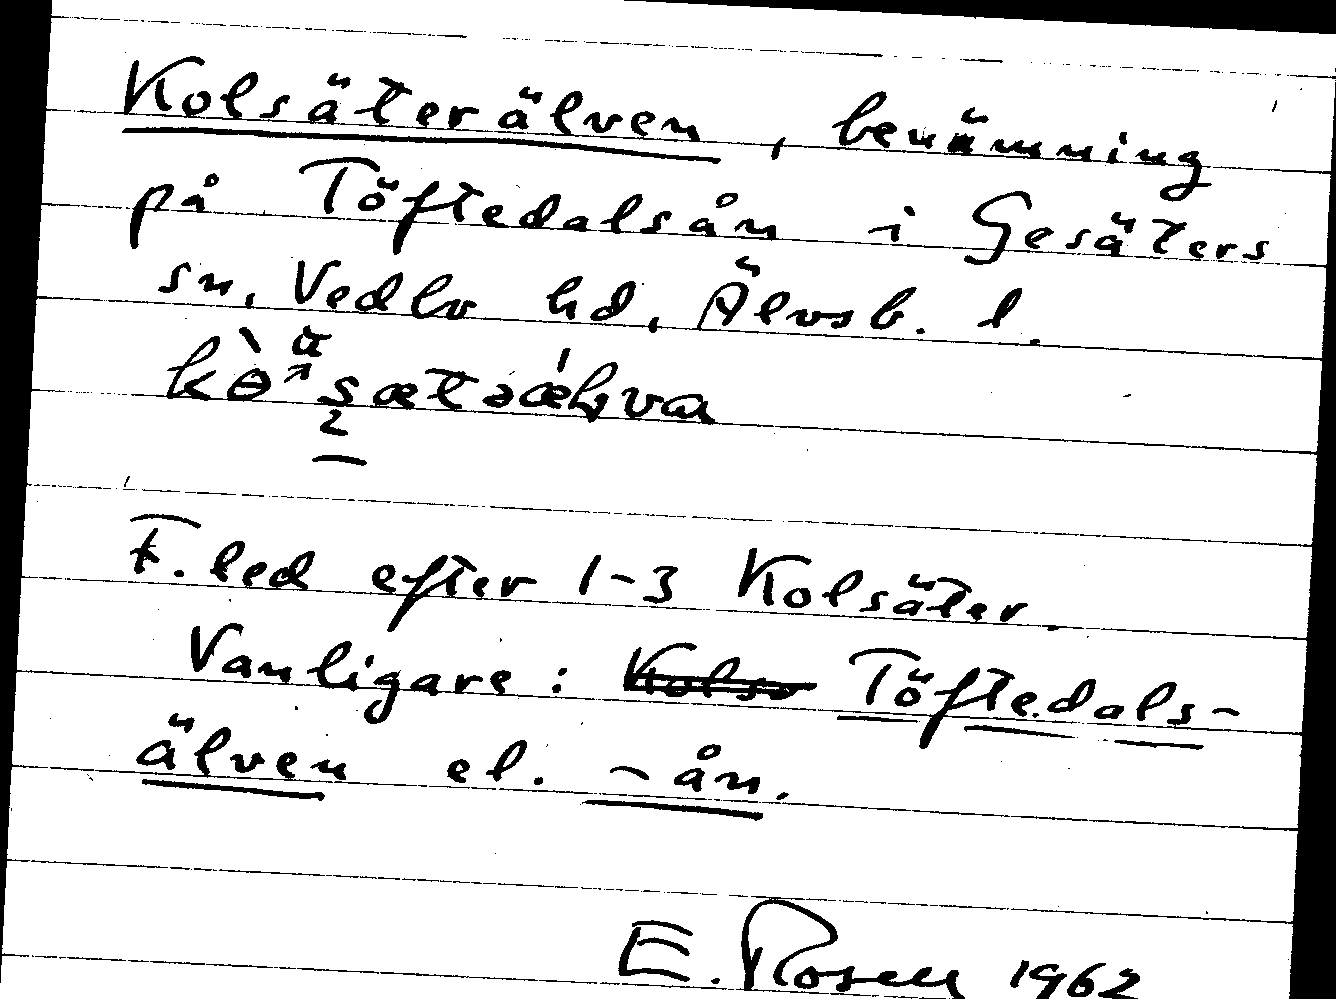 Kolsäterälven, benämning
på Töftedalsån i Gesäters
sn, Vedbo hd, Älvsb. l.
F. led efter 1-3 Kolsäter.
Vanligare: Kolsö Töftedals-
älven el. -ån.
E. Rosell 1962